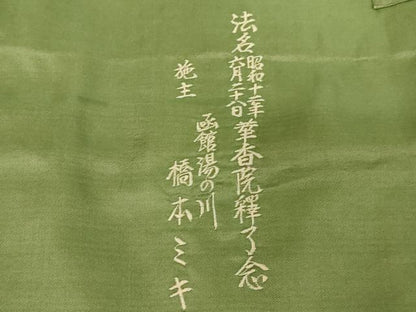 法名 昭和十二年六月二十日 華香院釋了念
施主 函館湯の川 橋本ミキ